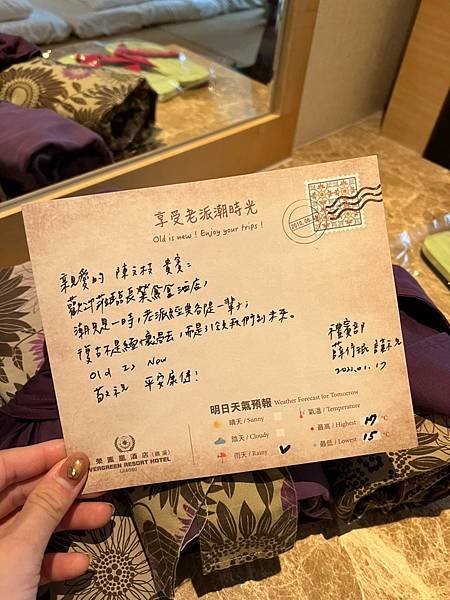 享受老派潮時光
Old is new! Enjoy your trips!
親愛的 陳 貴賓:
歡迎蒞臨長榮鳳凰酒店,
潮只是一時,老派經典才是一輩子;
復古不是緬懷過去,而是引領我們到未來。
Old is Now
敬祝 平安康健!
禮賓部
敬祝
2022.01.17
明日天氣預報 Weather Forecast for Tomorrow
晴天 / Sunny
陰天 / Cloudy
雨天 / Rainy ✓
氣溫 / Temperature
最高 / Highest 17 °C
最低 / Lowest 15 °C
榮鳳凰酒店(礁溪)
EVERGREEN RESORT HOTEL
(JIAOSI)